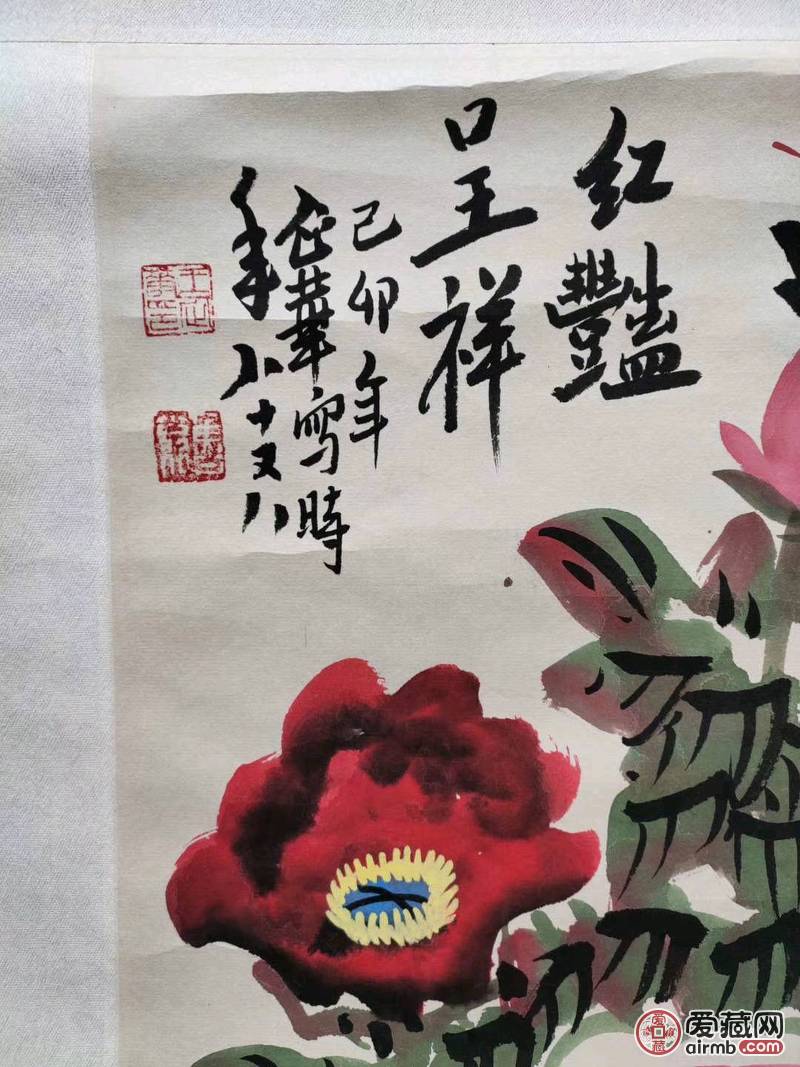 红豔
呈祥
己卯年
企華寫時
年八十又八
王企華印
爱藏网
airmb.com